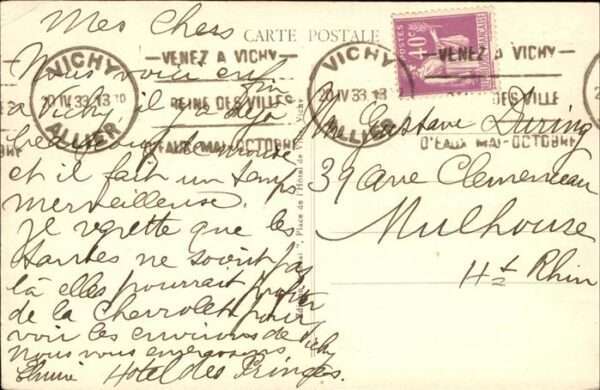 CARTE POSTALE
Mes Chers
Nous voici enfin
a Vichy, il y a déjà
beaucoup de monde
et il fait un temps
merveilleuse.
je regrette que les
tantes ne soient pas
là elles pourrait profiter
de la Chevrolet pour
voir les environs de Vichy
nous vous embrassons
Hotel des Princes.
VICHY
20 IV 33 13
ALLIER
VENEZ A VICHY
REINE DES VILLES
D'EAUX MAI-OCTOBRE
VICHY
20 IV 33 13
ALLIER
VENEZ A VICHY
DES VILLE
D'EAUX MAI-OCTOBRE
POSTES
40c
Place de l'Hôtel de Vichy
Gustave Düring
39 Ave Clemenceau
Mulhouse
Ht Rhin